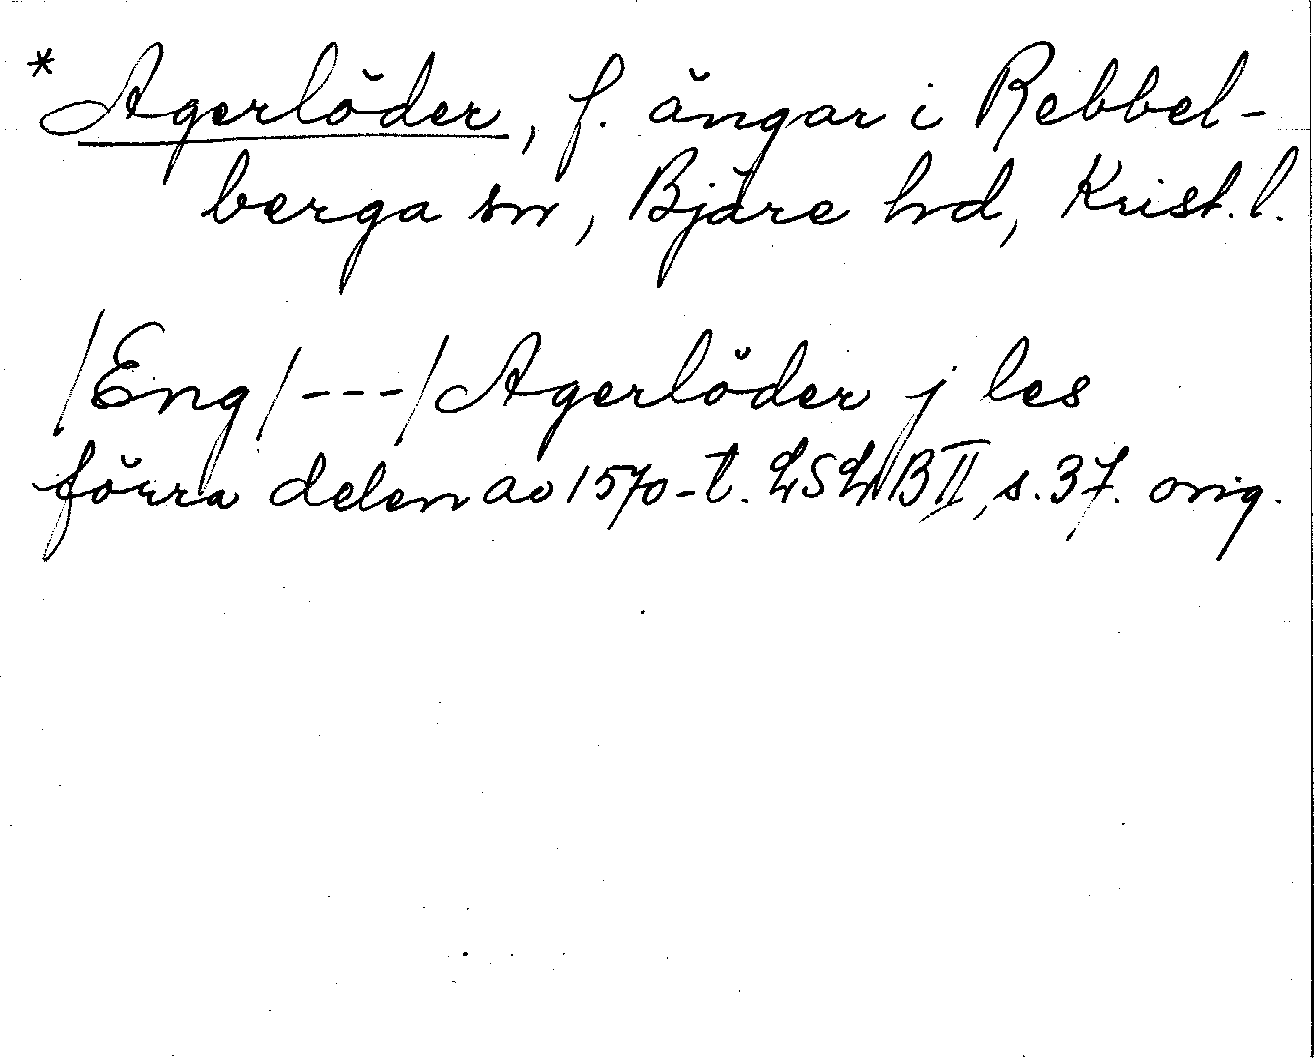 * Agerlöder, f. ängar i Rebbel-
berga sn, Bjäre hd, Krist. l.
/Eng/---/Agerlöder j les
förra delen av 1570-t. LSLB II, s. 37. orig.